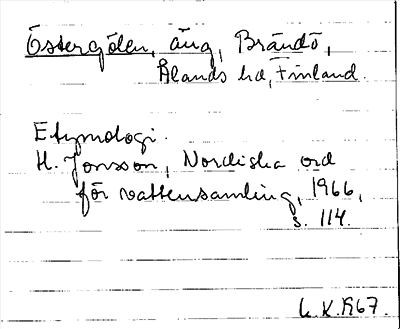 Östergölen, äng, Brändö,
Ålands hd, Finland.
Etymologi.
H. Jonsson, Nordiska ord
för vattensamling, 1966,
s. 114.
L.K. 1967.